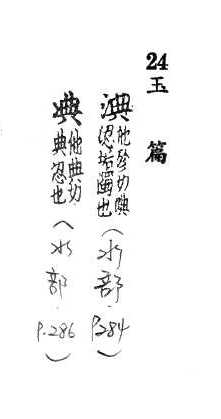 24
玉篇
淟 他殄切淟涊垢濁也(水部 P.284)
他典切典忍也(水部 P.286)